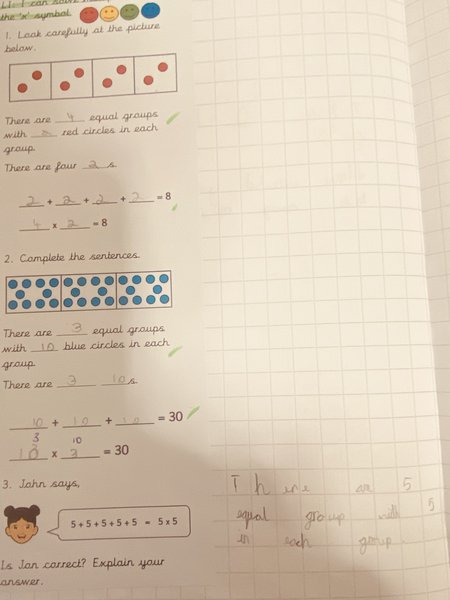 LI: I can solve
the 'x' symbol.
1. Look carefully at the picture
below.
There are 4 equal groups
with 2 red circles in each
group.
There are four 2 s.
2 + 2 + 2 + 2 = 8
4 x 2 = 8
2. Complete the sentences.
There are 3 equal groups
with 10 blue circles in each
group.
There are 3 10 s.
10 + 10 + 10 = 30
3 10
10 x 3 = 30
3. John says,
5 + 5 + 5 + 5 + 5 = 5 x 5
Is Jon correct? Explain your
answer.
There are 5
equal group with 5
in each group.